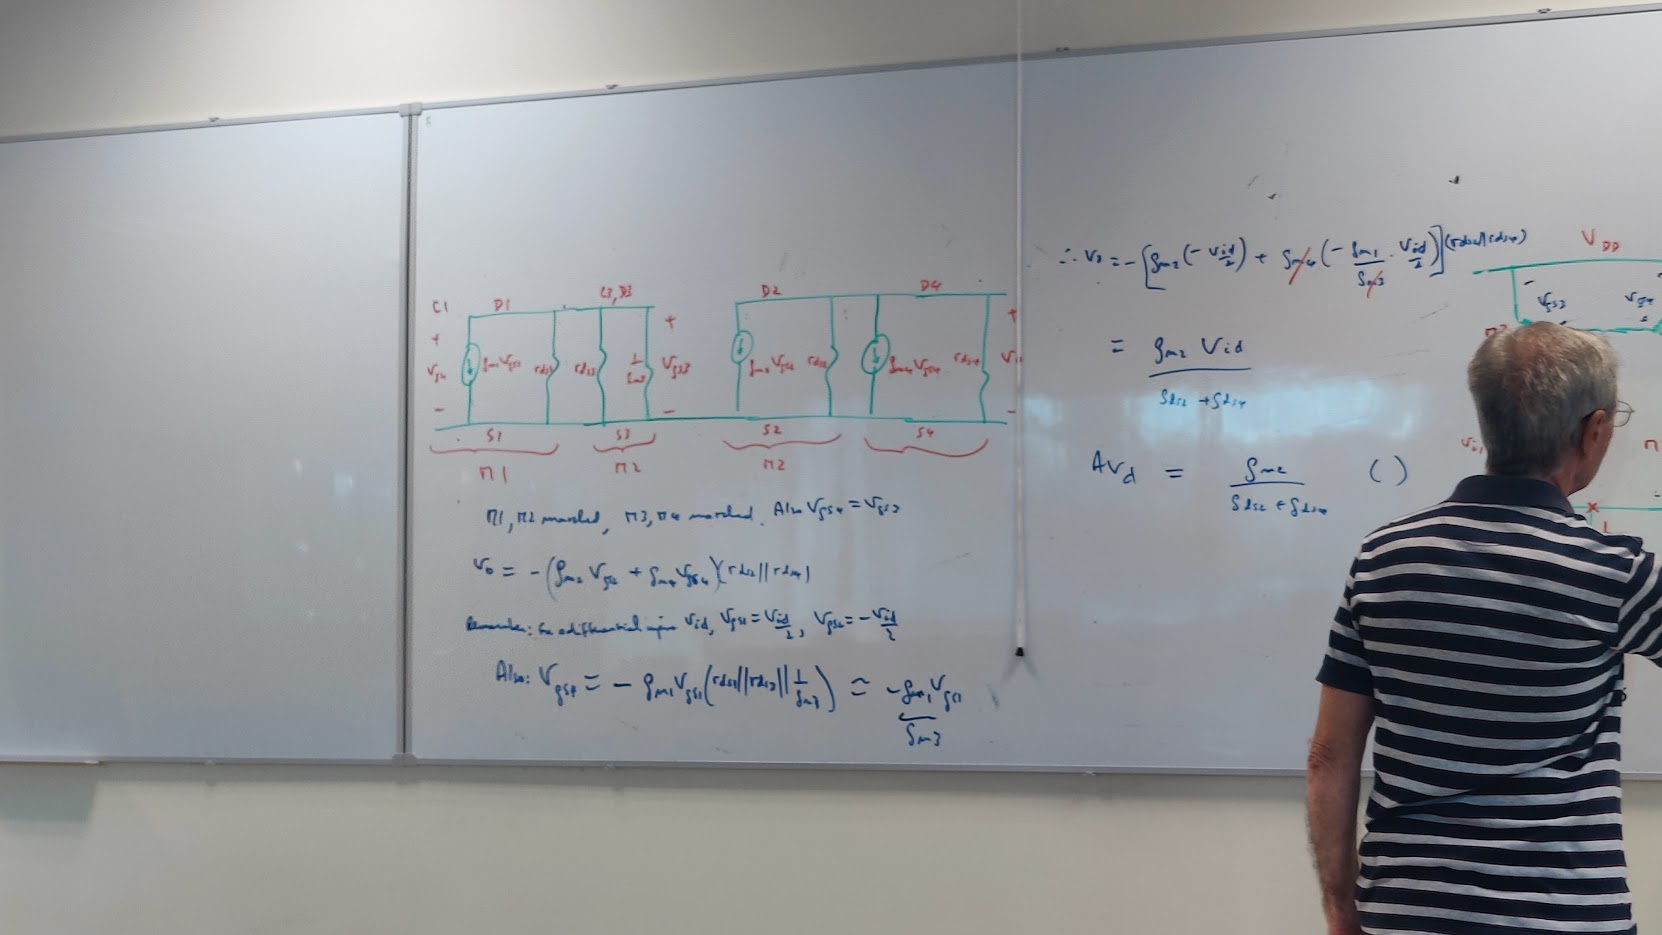 G1 D1 G3, D3 D2 D4
+ + +
Vgs1 gm1Vgs1 rds1 rds3 1/gm3 Vgs3 gm2Vgs2 rds2 gm4Vgs4 rds4
- - -
S1 S3 S2 S4
M1 M2 M2
M1, M2 matched, M3, M4 matched. Also Vgs4 = Vgs3
Vo = -(gm2 Vgs2 + gm4 Vgs4)(rds2 || rds4)
Remember: for a differential input Vid, Vgs1 = Vid/2, Vgs2 = -Vid/2
Also: Vgs4 = - gm1 Vgs1 (rds1 || rds3 || 1/gm3) ≈ -gm1 Vgs1 / gm3
∴ Vo = -[gm2 (-Vid/2) + gm4 (-gm1/gm3 · Vid/2)] (rds2 || rds4)
= gm2 Vid / gds2 + gds4
AVd = gm2 / gds2 + gds4 ( )
VDD
Vgs3
Vi1